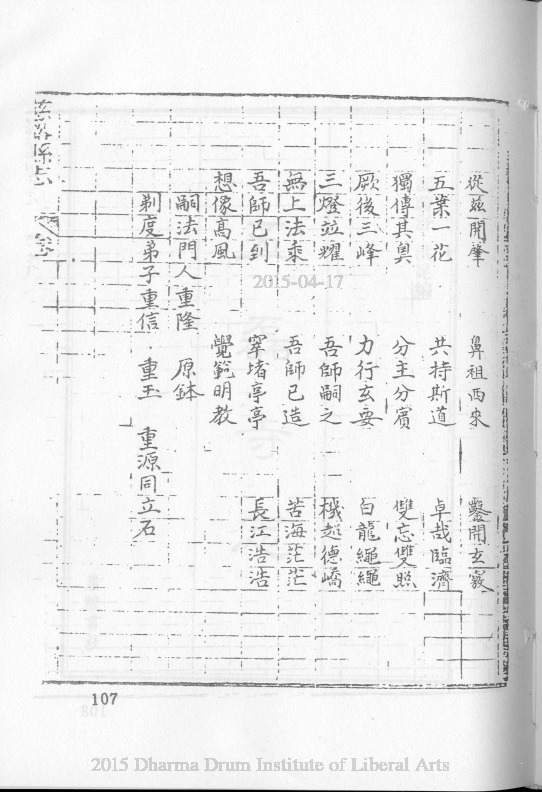 從茲開肇 鼻祖西來 鑿開玄竅
五葉一花 共持斯道 卓哉臨濟
獨傳其奧 分主分賓 雙忘雙照
厥後三峰 力行玄要 白龍繩繩
三燈竝耀 吾師嗣之 機超德嶠
無上法乘 吾師已造 苦海茫茫
吾師已到 窣堵亭亭 長江浩浩
想像高風 覺範明教
嗣法門人重隆 原鉢
剃度弟子重信 重玉 重源同立石
107
2015-04-17
2015 Dharma Drum Institute of Liberal Arts